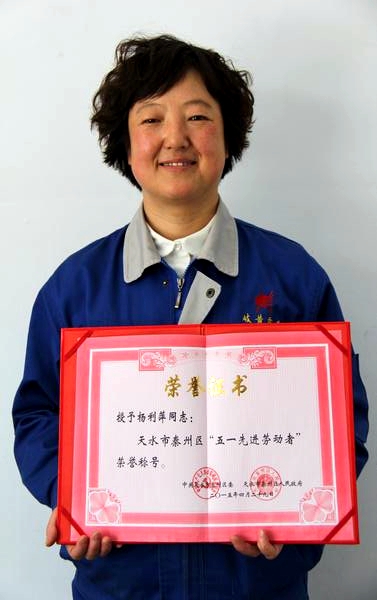 荣誉证书
授予杨利萍同志：
天水市秦州区“五一先进劳动者”
荣誉称号。
天水市秦州区人民政府
二〇一五年四月二十九日